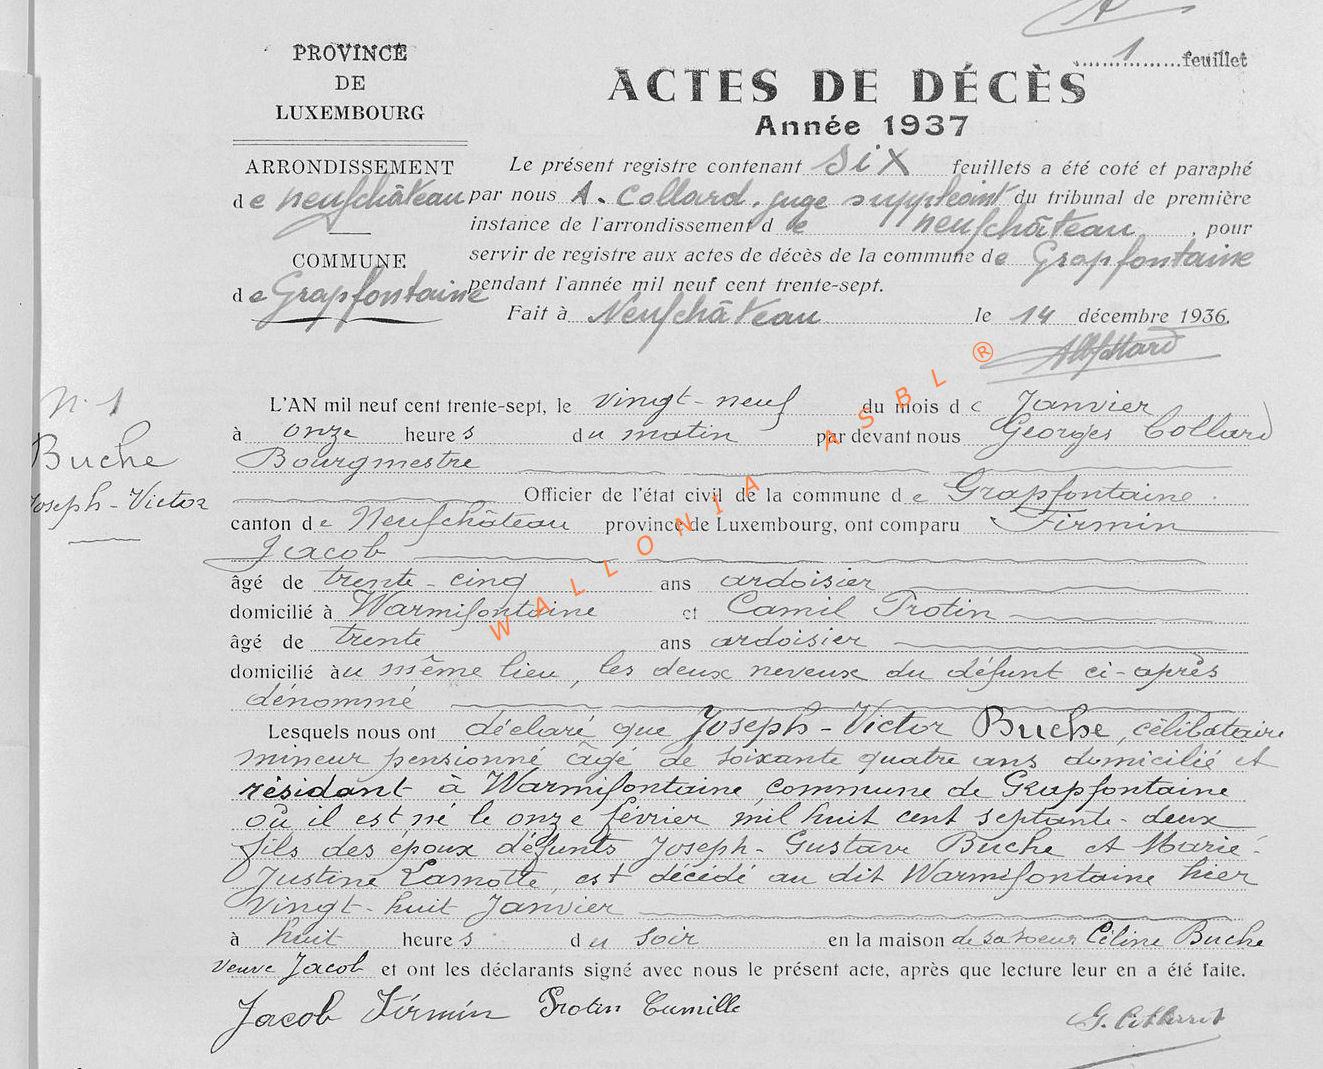 1 feuillet
PROVINCE
DE
LUXEMBOURG
ACTES DE DÉCÈS
Année 1937
ARRONDISSEMENT
de Neufchâteau
COMMUNE
de Grapfontaine
Le présent registre contenant six feuillets a été coté et paraphé
par nous A. Collard, juge suppléant du tribunal de première
instance de l'arrondissement de Neufchâteau, pour
servir de registre aux actes de décès de la commune de Grapfontaine
pendant l'année mil neuf cent trente-sept.
Fait à Neufchâteau le 14 décembre 1936.
N. 1
Buche
Joseph-Victor
L'AN mil neuf cent trente-sept, le vingt-neuf du mois de Janvier
à onze heures du matin par devant nous Georges Collard
Bourgmestre
Officier de l'état civil de la commune de Grapfontaine
canton de Neufchâteau province de Luxembourg, ont comparu Firmin
Jacob
âgé de trente-cinq ans ardoisier
domicilié à Warmifontaine et Camil Protin
âgé de trente ans ardoisier
domicilié au même lieu, les deux neveux du défunt ci-après
dénommé
Lesquels nous ont déclaré que Joseph-Victor Buche, célibataire
mineur pensionné âgé de soixante quatre ans domicilié et
résidant à Warmifontaine, commune de Grapfontaine
où il est né le onze février mil huit cent septante-deux
fils des époux défunts Joseph-Gustave Buche et Marie-
Justine Lamotte, est décédé au dit Warmifontaine hier
vingt-huit Janvier
à huit heures du soir en la maison de sa soeur Céline Buche
veuve Jacob et ont les déclarants signé avec nous le présent acte, après que lecture leur en a été faite.
Jacob Firmin Protin Camille G. Collard
WALLONIA ASBL ®